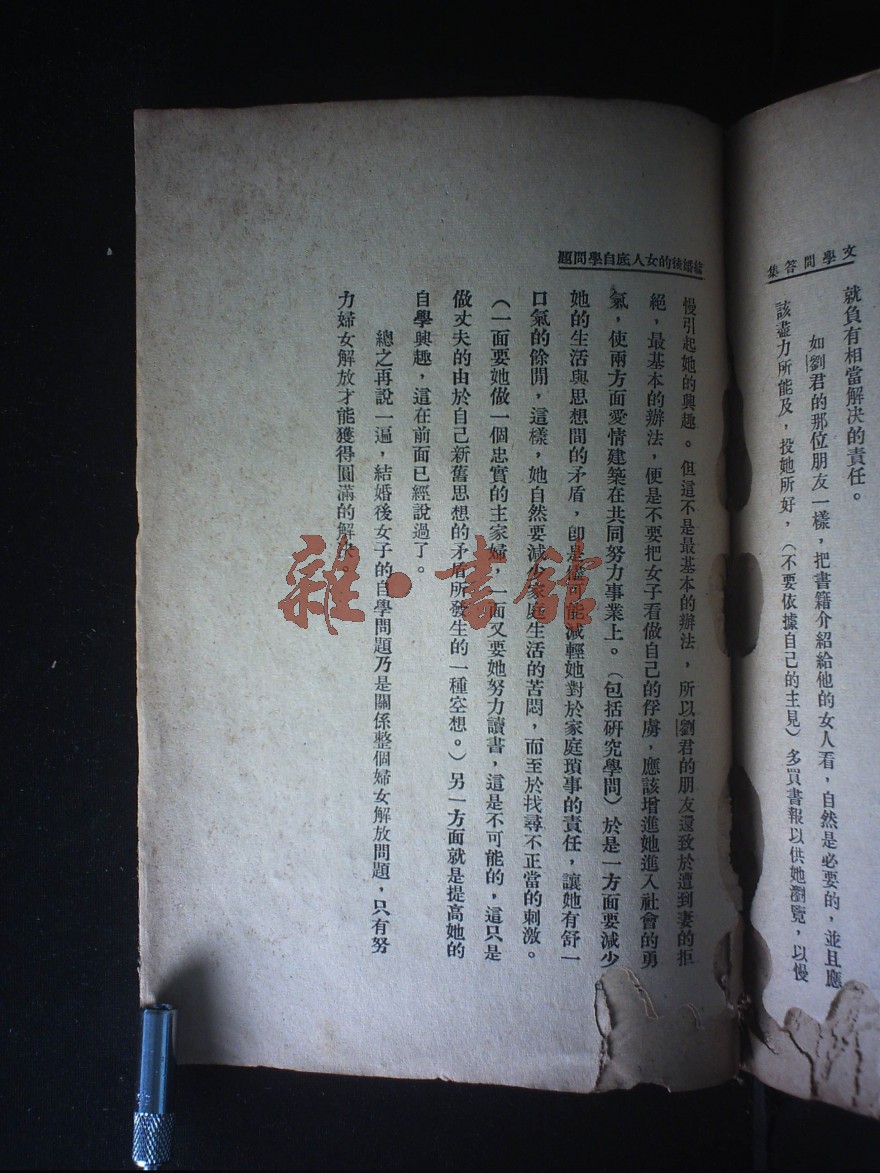 文學問答集
就負有相當解決的責任。
如劉君的那位朋友一樣，把書籍介紹給他的女人看，自然是必要的，並且應
該盡力所能及，投她所好，（不要依據自己的主見）多買書報以供她瀏覽，以慢
結婚後的女人底自學問題
慢引起她的興趣。但這不是最基本的辦法，所以劉君的朋友還致於遭到妻的拒
絕，最基本的辦法，便是不要把女子看做自己的俘虜，應該增進她進入社會的勇
氣，使兩方面愛情建築在共同努力事業上。（包括研究學問）於是一方面要減少
她的生活與思想間的矛盾，卽是儘可能減輕她對於家庭瑣事的責任，讓她有舒一
口氣的餘閒，這樣，她自然要減少家庭生活的苦悶，而至於找尋不正當的刺激。
（一面要她做一個忠實的主家婦，一面又要她努力讀書，這是不可能的，這只是
做丈夫的由於自己新舊思想的矛盾所發生的一種空想。）另一方面就是提高她的
自學興趣，這在前面已經說過了。
總之再說一遍，結婚後女子的自學問題乃是關係整個婦女解放問題，只有努
力婦女解放才能獲得圓滿的解決。
雜·書館